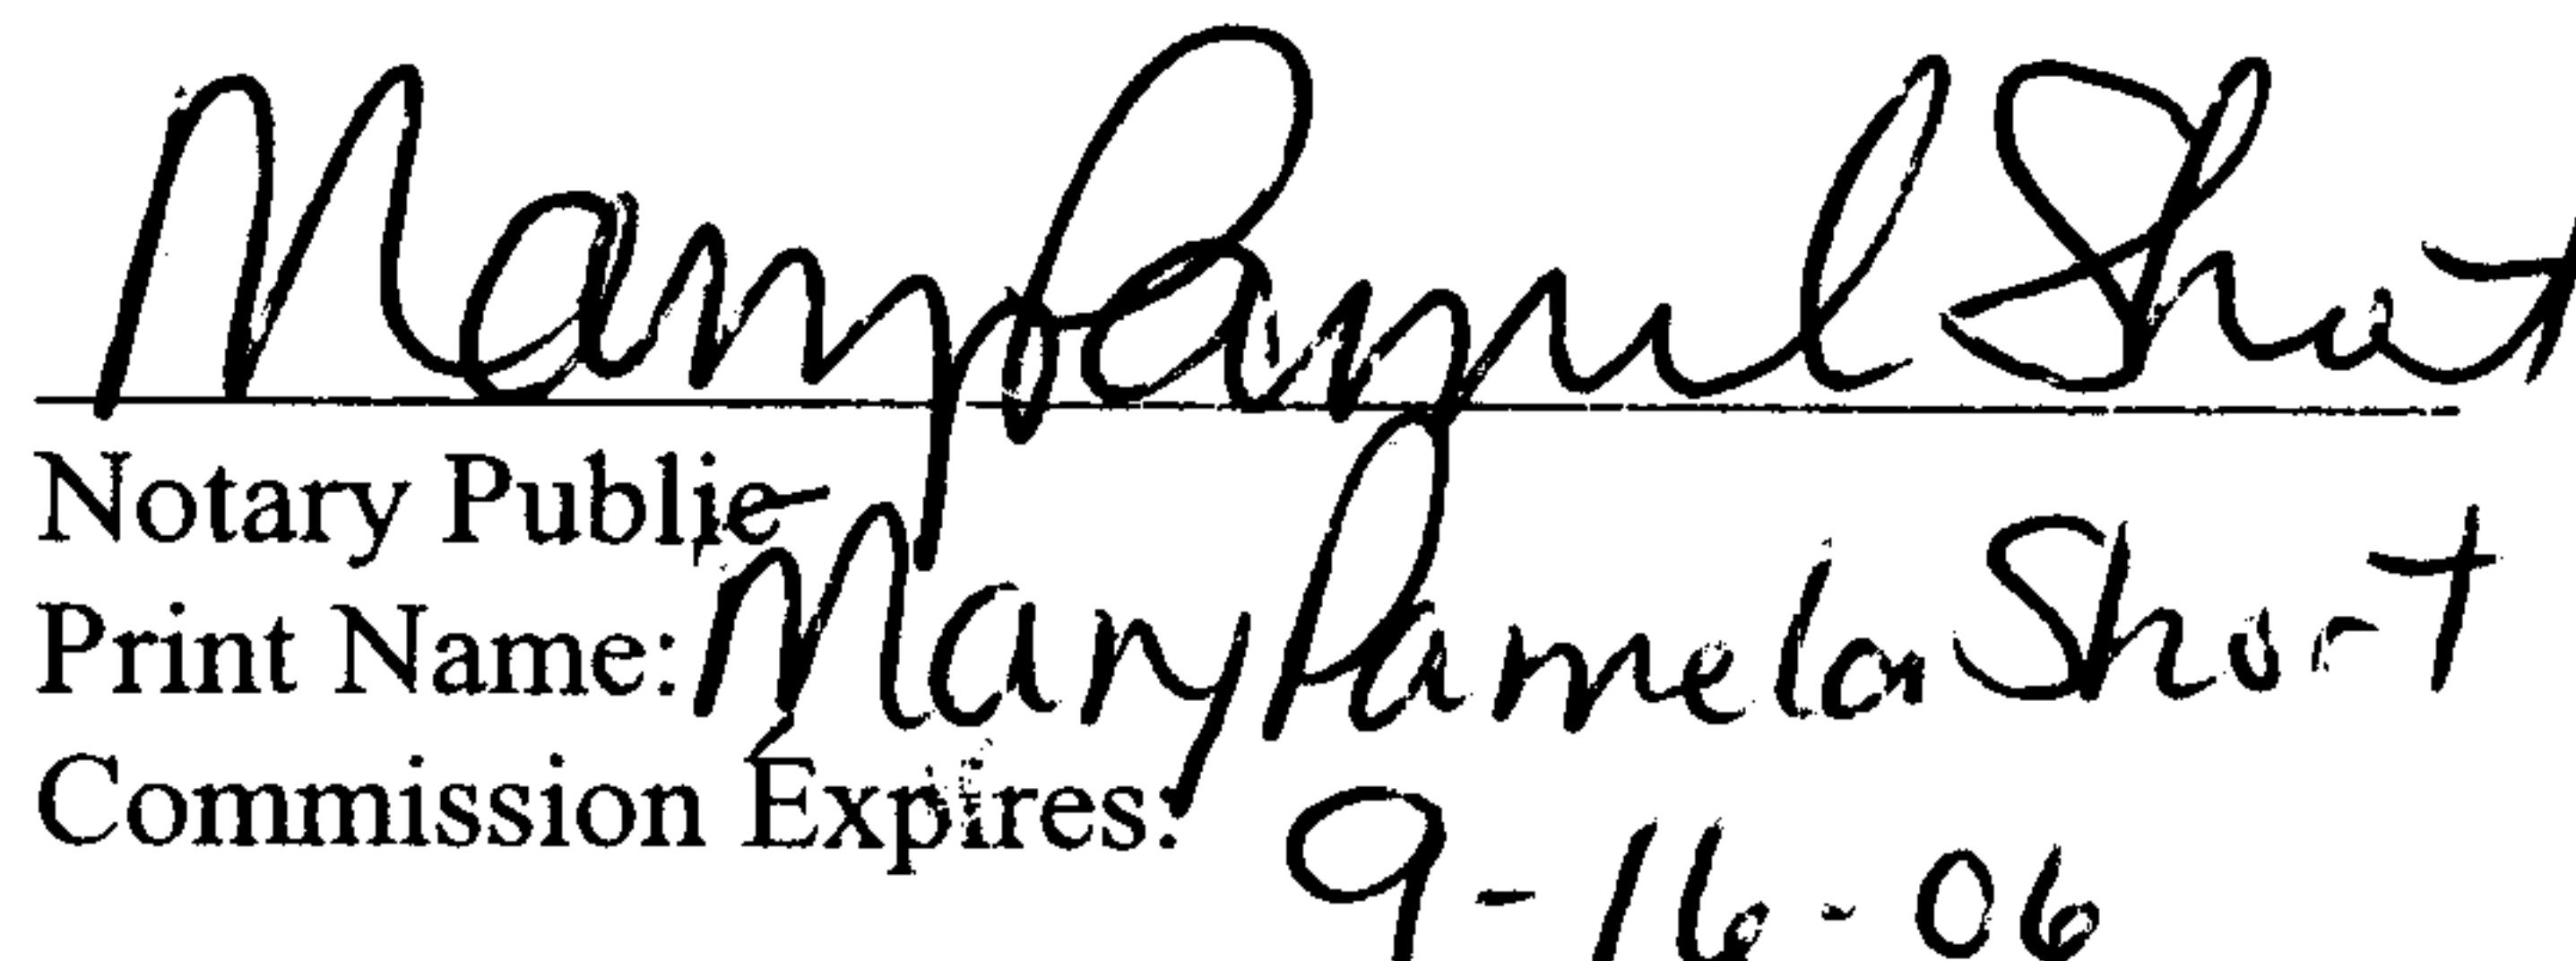 Mary Pamela Short
Notary Public
Print Name: Mary Pamela Short
Commission Expires: 9-16-06